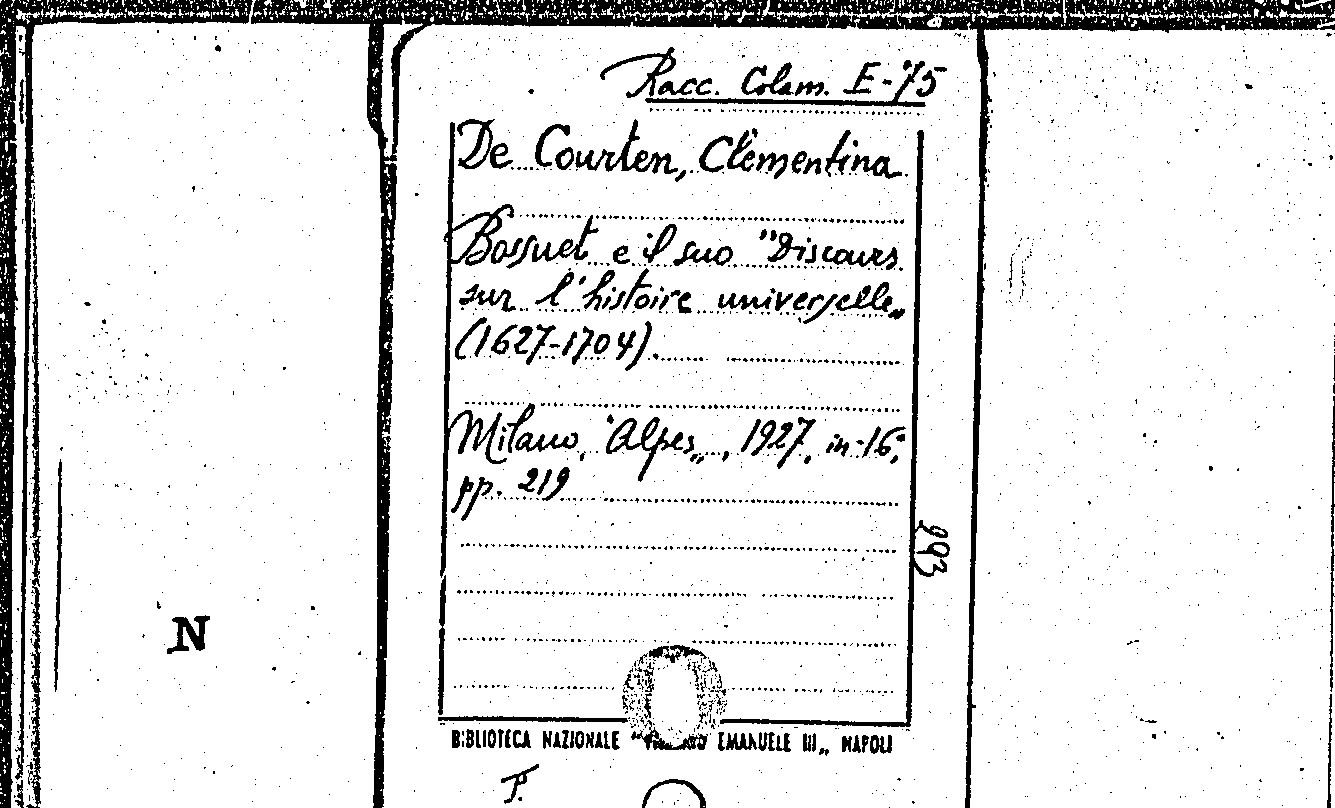 Racc. Colam. E-75
De Courten, Clementina
Bossuet e il suo "Discours
sur l'histoire universelle„
(1627-1704).
Milano, "Alpes„, 1927, in-16°,
pp. 219
293
N
BIBLIOTECA NAZIONALE EMANUELE III„ NAPOLI